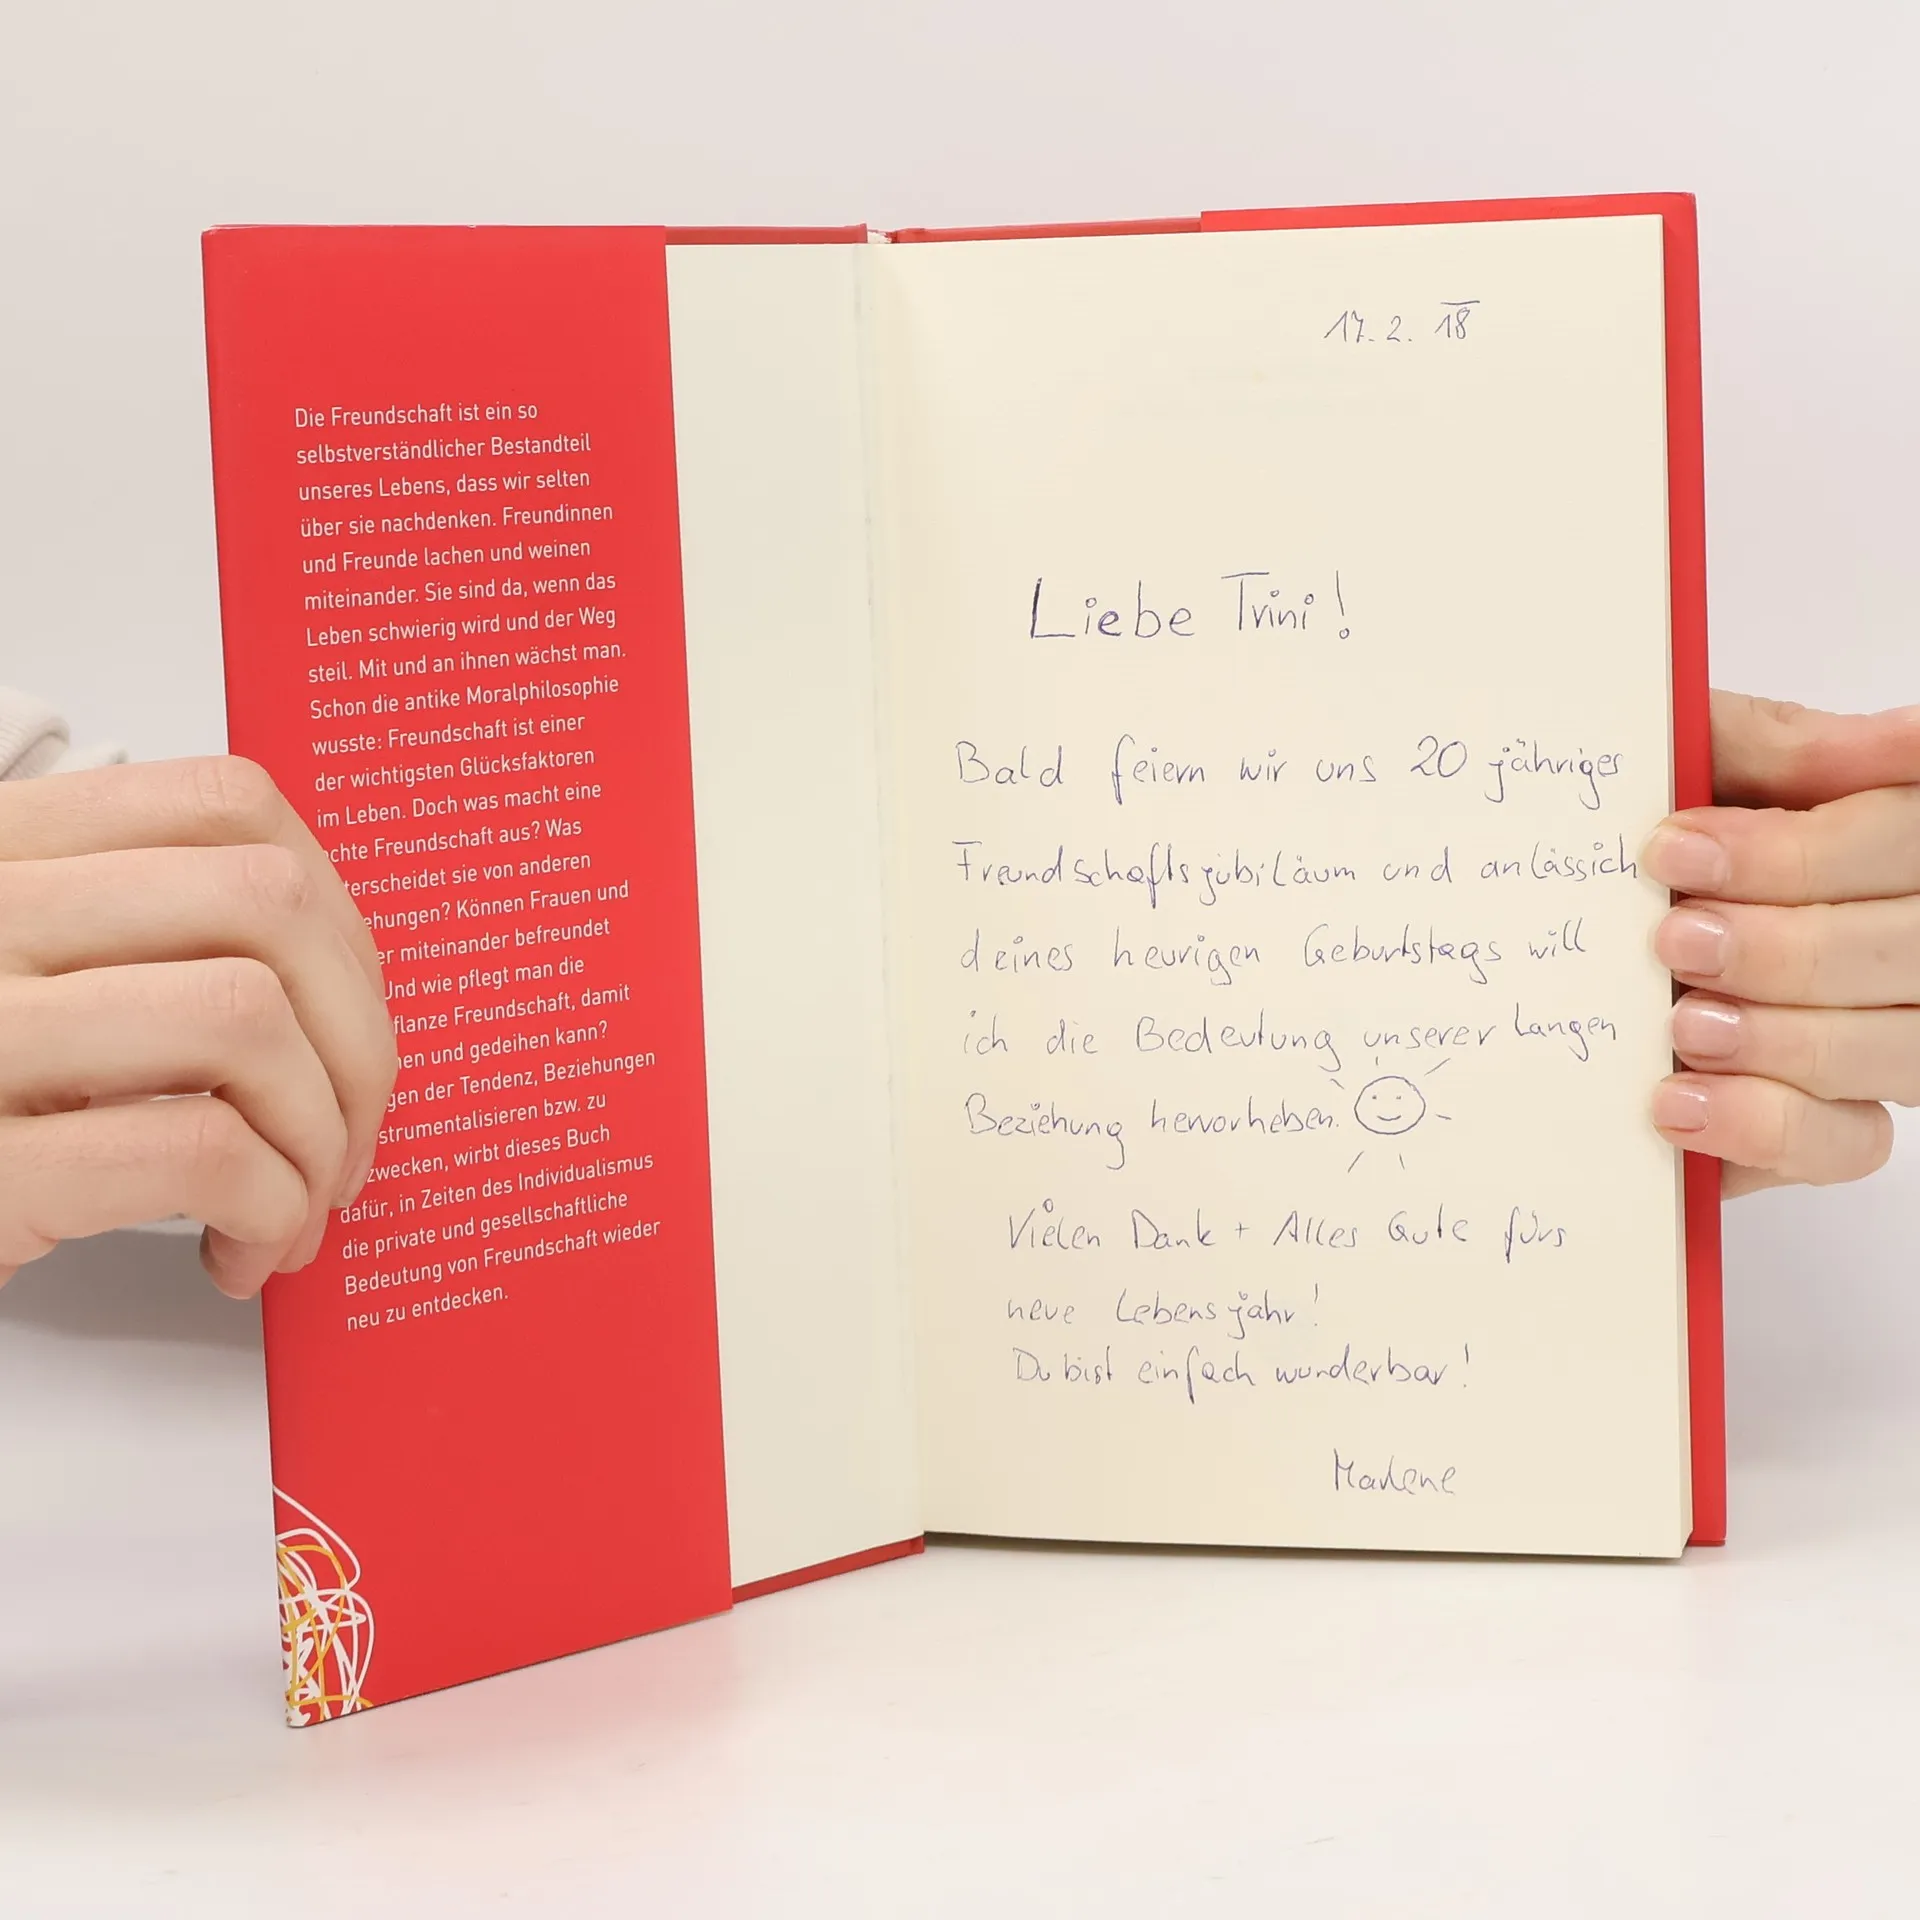 Die Freundschaft ist ein so
selbstverständlicher Bestandteil
unseres Lebens, dass wir selten
über sie nachdenken. Freundinnen
und Freunde lachen und weinen
miteinander. Sie sind da, wenn das
Leben schwierig wird und der Weg
steil. Mit und an ihnen wächst man.
Schon die antike Moralphilosophie
wusste: Freundschaft ist einer
der wichtigsten Glücksfaktoren
im Leben. Doch was macht eine
chte Freundschaft aus? Was
terscheidet sie von anderen
ehungen? Können Frauen und
er miteinander befreundet
Und wie pflegt man die
flanze Freundschaft, damit
hen und gedeihen kann?
gen der Tendenz, Beziehungen
strumentalisieren bzw. zu
zwecken, wirbt dieses Buch
dafür, in Zeiten des Individualismus
die private und gesellschaftliche
Bedeutung von Freundschaft wieder
neu zu entdecken.
17. 2. 18
Liebe Trini!
Bald feiern wir uns 20 jähriges
Freundschaftsjubiläum und anlässich
deines heurigen Geburtstags will
ich die Bedeutung unserer langen
Beziehung hervorheben.
Vielen Dank + Alles Gute fürs
neue Lebensjahr!
Du bist einfach wunderbar!
Marlene